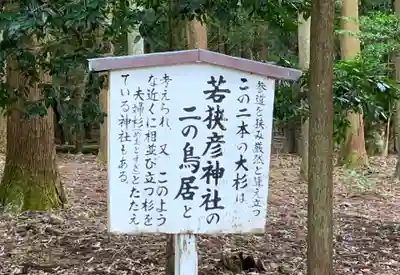 参道を挟み厳然と聳え立つ
この二本の大杉は、
若狭彦神社の
二の鳥居と
考えられ、又、このよう
な近くに相並び立つ杉を
夫婦杉(めおとすぎ)とたたえ
ている神社もある。